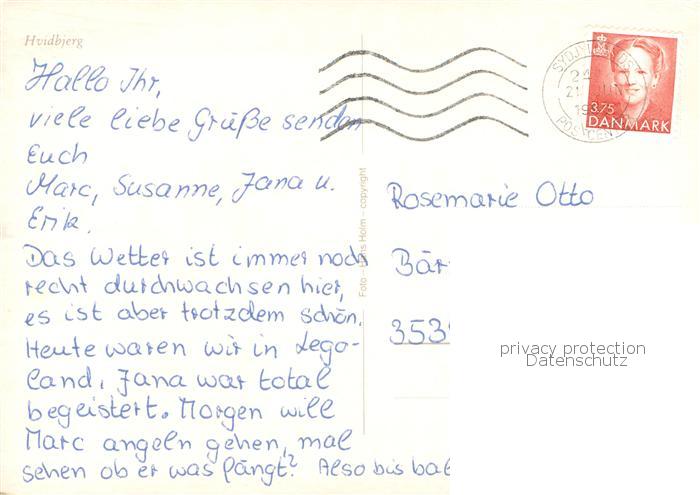 Hvidbjerg
Hallo Ihr,
viele liebe Grüße senden
Euch
Marc, Susanne, Jana u.
Erik.
Das Wetter ist immer noch
recht durchwachsen hier,
es ist aber trotzdem schön.
Heute waren wir in Lego-
land, Jana war total
begeistert. Morgen will
Marc angeln gehen, mal
sehen ob er was fängt? Also bis bal
Foto – Hans Holm – copyright
Rosemarie Otto
Bär
353
privacy protection
Datenschutz
3.75
DANMARK